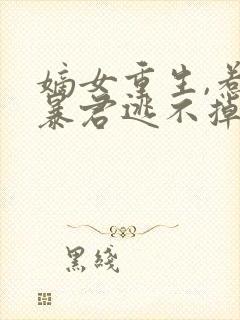 嫡女重生,惹
暴君逃不掉
黑綫